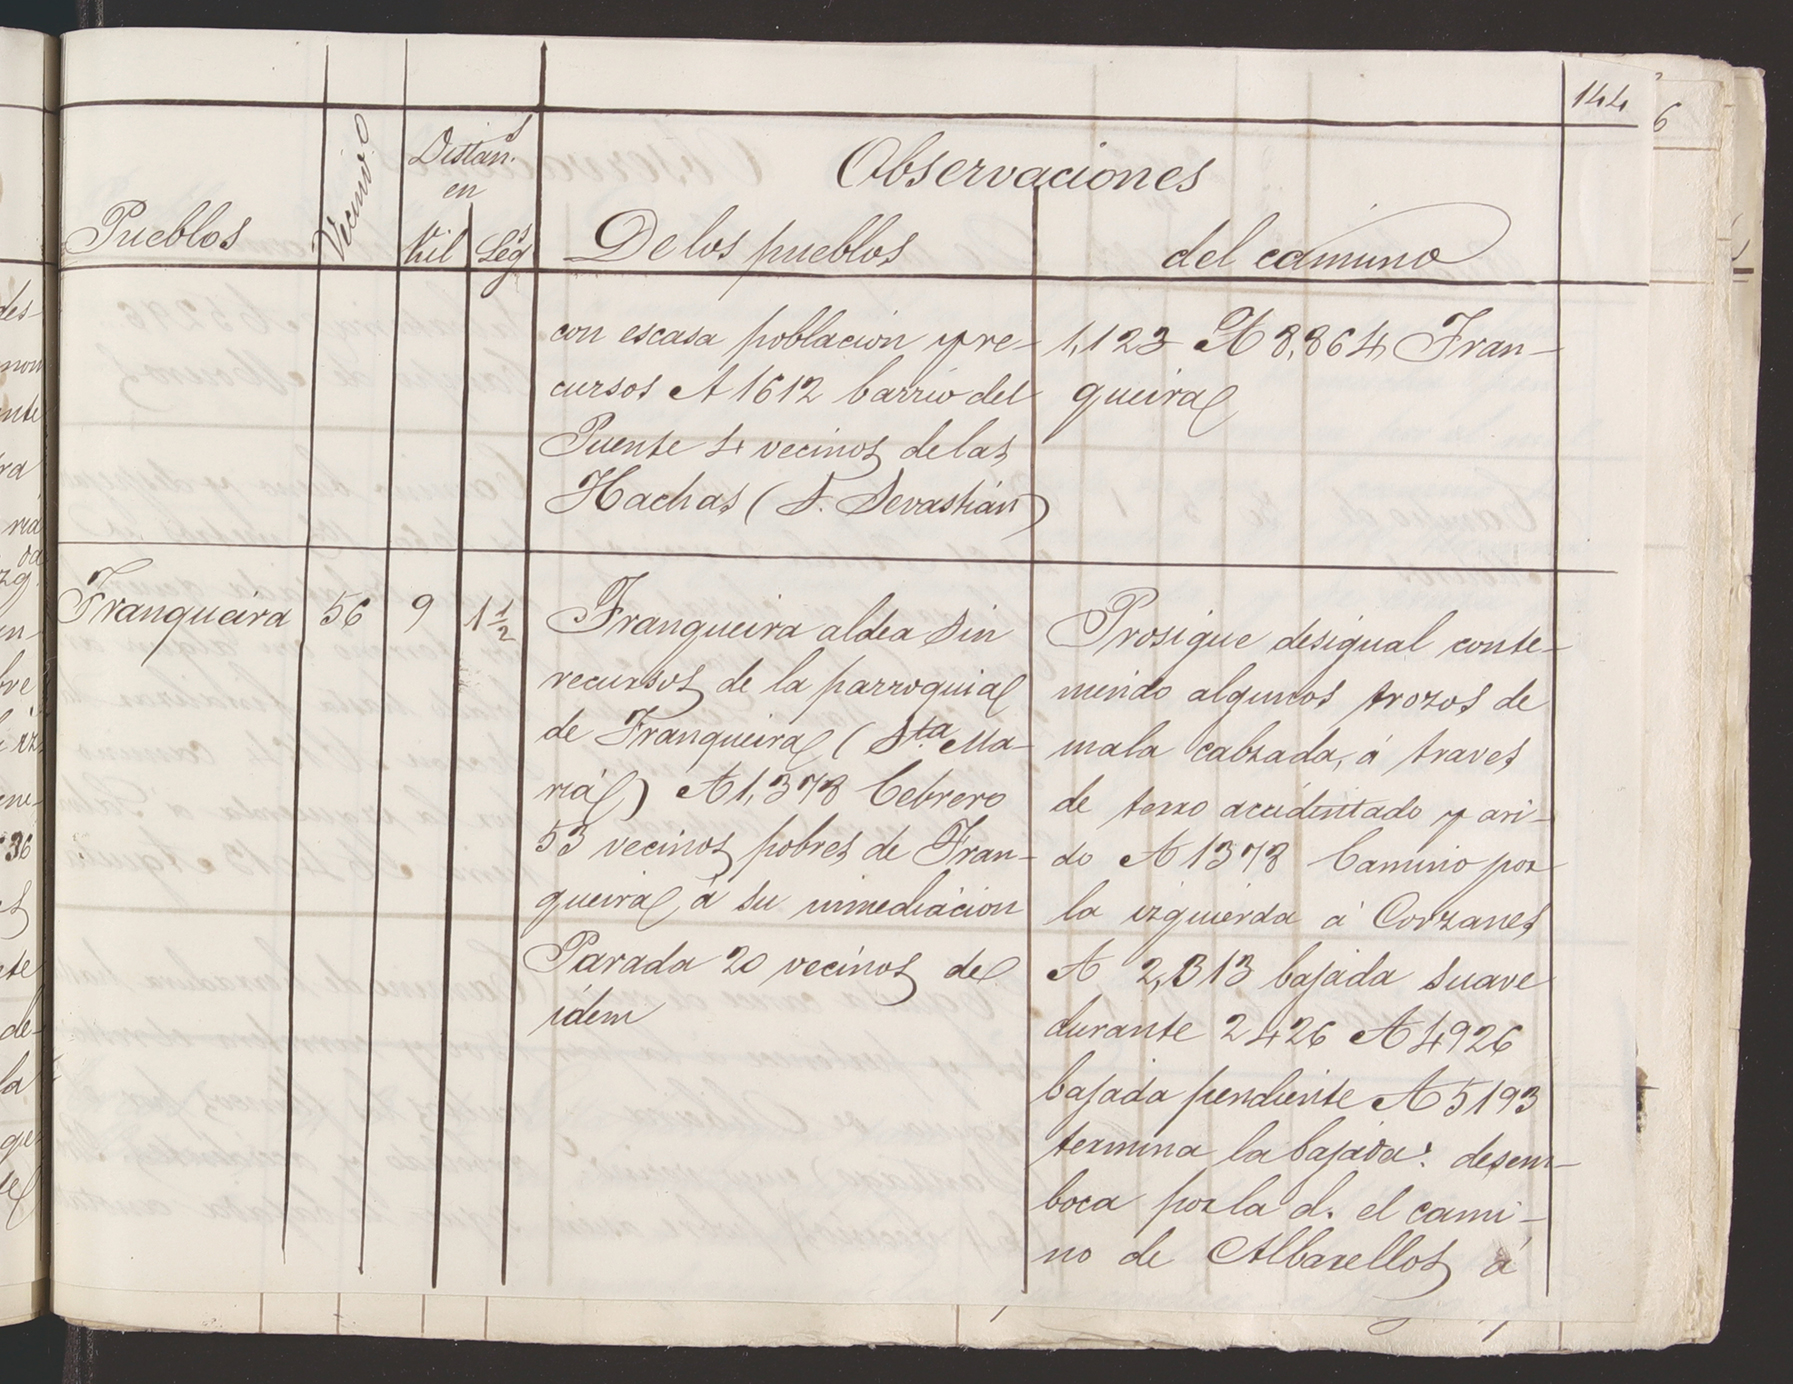 144
6
Observaciones
Pueblos
Vecind.º
Distan.s
en
Kil
Leg.s
De los pueblos
del camino
con escasa poblacion y re-
cursos A 1612 barrio del
Puente 4 vecinos de las
Hachas (S. Sevastián)
1,123 A 8,864 Fran-
queira
Franqueira 56 9 1 1/2
Franqueira aldea sin
recursos de la parroquia
de Franqueira (Sta Ma-
ria) A 1,378 Cebrero
53 vecinos pobres de Fran-
queira á su inmediacion
Parada 20 vecinos de
idem
Prosigue desigual conte-
niendo algunos trozos de
mala calzada, á traves
de terro accidentado y ari-
do A 1378 Camino por
la izquierda á Corzanes
A 2,513 bajada suave
durante 2426 A 4926
bajada pendiente A 5193
termina la bajada: desem-
boca por la d. el cami-
no de Albarellos á